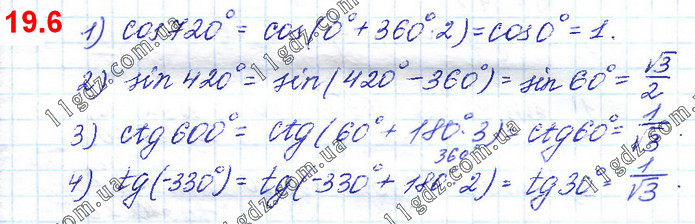 19.6
1) cos 720° = cos(0° + 360°·2) = cos 0° = 1.
2) sin 420° = sin(420° − 360°) = sin 60° = √3/2
3) ctg 600° = ctg(60° + 180°·3) = ctg 60° = 1/√3.
360
4) tg(−330°) = tg(−330° + 180°·2) = tg 30° = 1/√3.
11gdz.com.ua
11gdz.com.ua
11gdz.com.ua
11gdz.com.ua